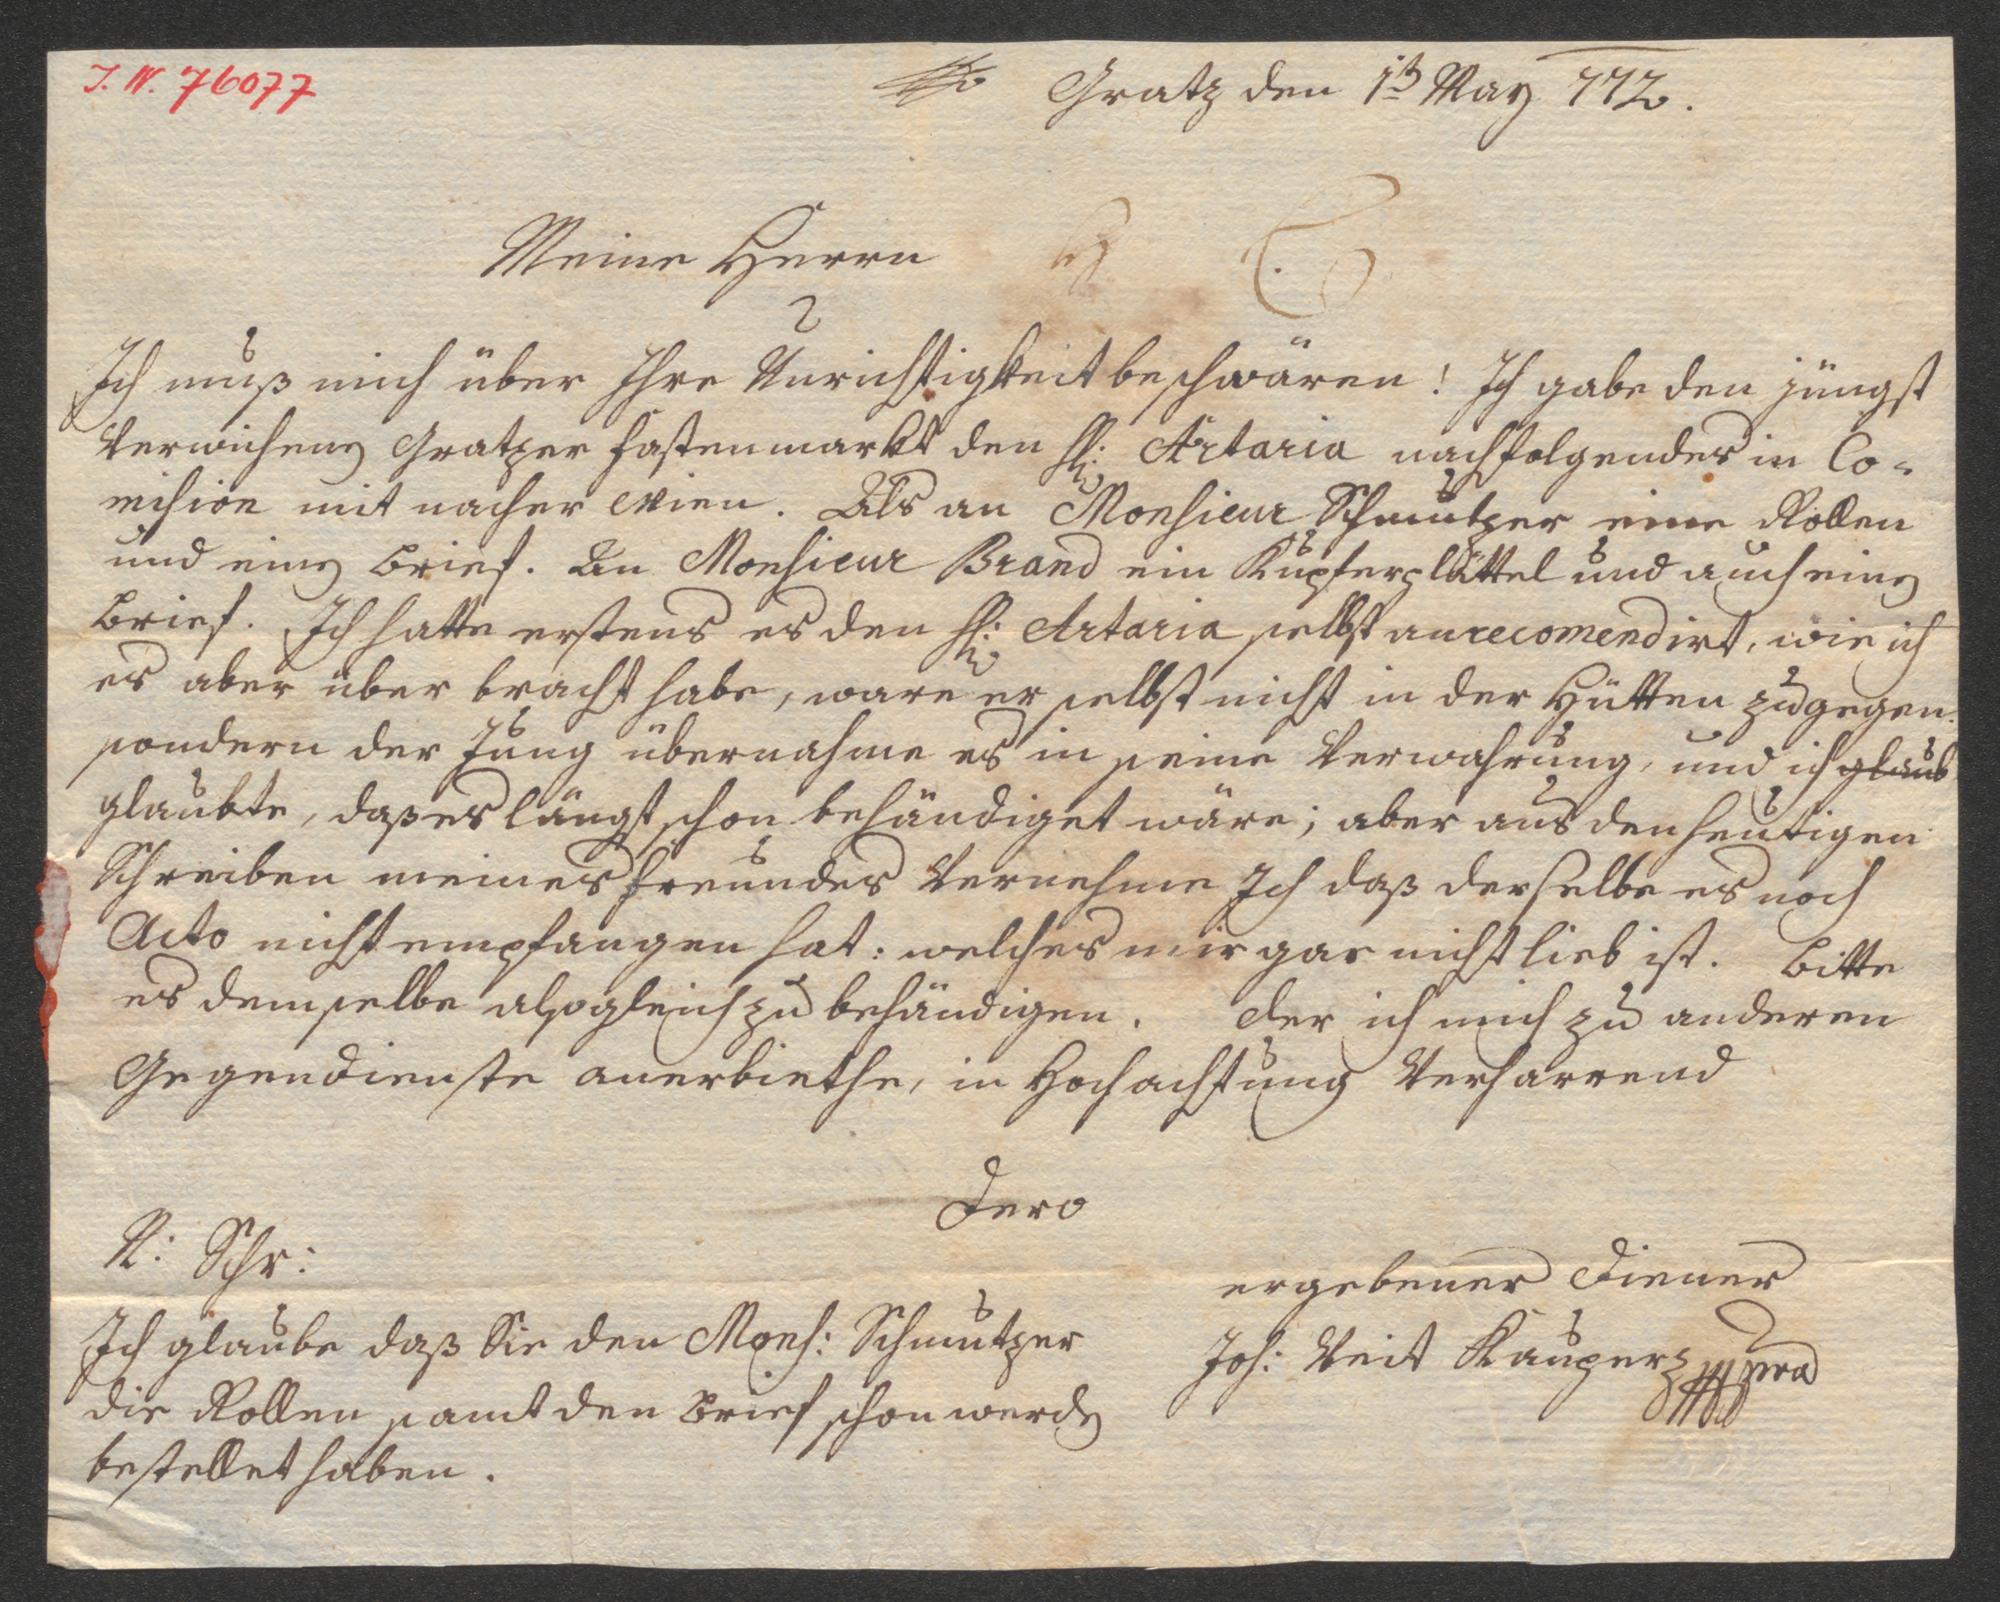 I. N. 76077
Gratz den 1t May 772.
Meine Herrn
Ich muß mich über Ihre Unrichtigkeit beschwären! Ich gabe den jüngst
Verwichenen Gratzer Fastenmarkt den H: Artaria nachfolgendes in Co=
mision mit nacher Wien. Als an Monsieur Schmutzer eine Rollen
und einen Brief. An Monsieur Brand ein Kupferplättel und auch einen
Brief. Ich hatte erstens es den H: Artaria selbst anrecomendirt, wie ich
es aber über bracht habe, ware er selbst nicht in der Hütten zugegen.
sondern der Jung übernahme es in seine Verwahrung, und ich glaub
glaubte, daß es längst schon behändiget wäre; aber aus den heutigen
Schreiben meines Freundes Vernehme Ich daß derselbe es noch
Acto nicht empfangen hat: welches mir gar nicht lieb ist. Bitte
es demselbe alsogleich zu behändigen. Der ich mich zu anderen
Gegendienste anerbiethe, in Hochachtung Verharrend
Dero
ergebener Diener
Joh: Veit Kauperz mpra
N: Schr:
Ich glaube daß Sie den Mons: Schmutzer
die Rollen samt den Brief schon werden
bestellet haben.